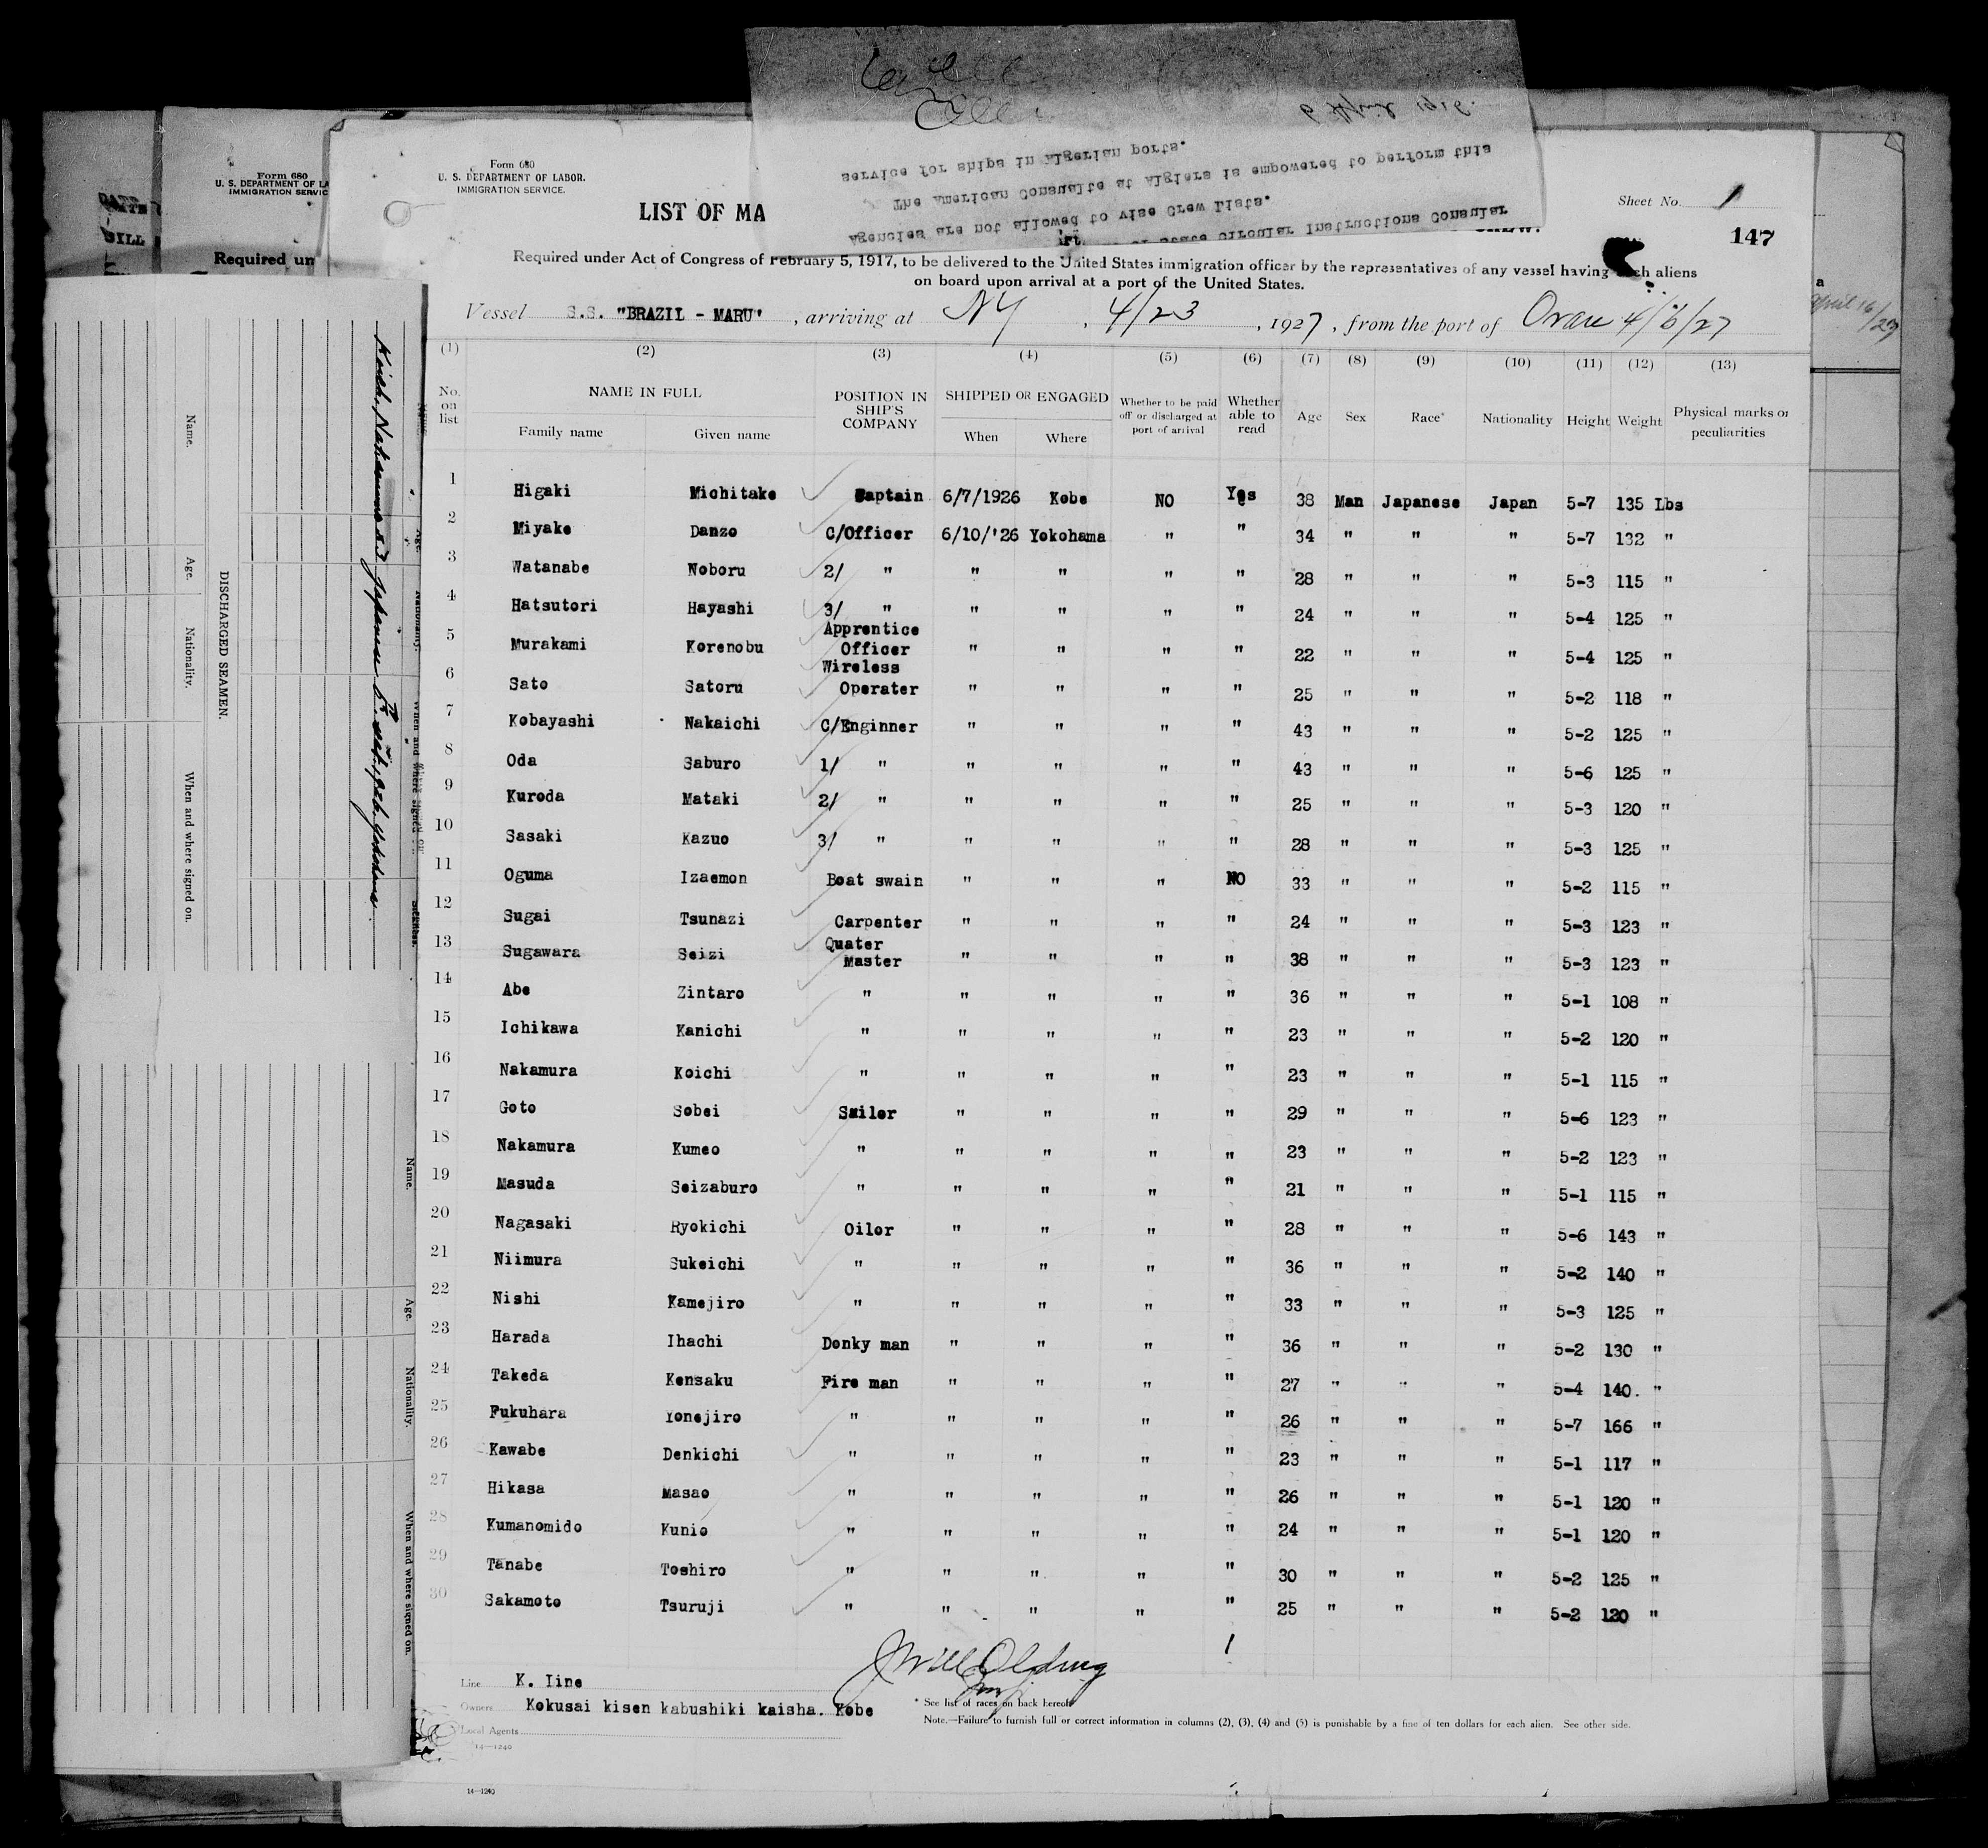 Form 680
U. S. DEPARTMENT OF LABOR.
IMMIGRATION SERVICE.
LIST OF MA
Sheet No. 1
147
service for ships in Algerian ports.
The American Consualte at Algiers is empowered to perform this
Agencies are not allowed to vise Crew Lists.
State Circular Instructions Consular
Required under Act of Congress of February 5, 1917, to be delivered to the United States immigration officer by the representatives of any vessel having such aliens
on board upon arrival at a port of the United States.
Vessel S.S. "BRAZIL - MARU", arriving at NY, 4/23, 1927, from the port of Oran 4/6/27
(1) (2) (3) (4) (5) (6) (7) (8) (9) (10) (11) (12) (13)
No. on list NAME IN FULL Family name Given name POSITION IN SHIP'S COMPANY SHIPPED OR ENGAGED When Where Whether to be paid off or discharged at port of arrival Whether able to read Age Sex Race* Nationality Height Weight Physical marks or peculiarities
1 Higaki Michitake Captain 6/7/1926 Kobe NO Yes 38 Man Japanese Japan 5-7 135 Lbs
2 Miyake Danzo C/Officer 6/10/'26 Yokohama " " 34 " " " 5-7 132 "
3 Watanabe Noboru 2/ " " " " " 28 " " " 5-3 115 "
4 Hatsutori Hayashi 3/ " " " " " 24 " " " 5-4 125 "
5 Murakami Korenobu Apprentice Officer " " " " 22 " " " 5-4 125 "
6 Sato Satoru Wireless Operater " " " " 25 " " " 5-2 118 "
7 Kobayashi Nakaichi C/Enginner " " " " 43 " " " 5-2 125 "
8 Oda Saburo 1/ " " " " " 43 " " " 5-6 125 "
9 Kuroda Mataki 2/ " " " " " 25 " " " 5-3 120 "
10 Sasaki Kazuo 3/ " " " " " 28 " " " 5-3 125 "
11 Oguma Izaemon Boat swain " " " NO 33 " " " 5-2 115 "
12 Sugai Tsunazi Carpenter " " " " 24 " " " 5-3 123 "
13 Sugawara Seizi Quater Master " " " " 38 " " " 5-3 123 "
14 Abe Zintaro " " " " " 36 " " " 5-1 108 "
15 Ichikawa Kanichi " " " " " 23 " " " 5-2 120 "
16 Nakamura Koichi " " " " " 23 " " " 5-1 115 "
17 Goto Sobei Sailer " " " " 29 " " " 5-6 123 "
18 Nakamura Kumeo " " " " " 23 " " " 5-2 123 "
19 Masuda Seizaburo " " " " " 21 " " " 5-1 115 "
20 Nagasaki Ryokichi Oiler " " " " 28 " " " 5-6 143 "
21 Niimura Sukeichi " " " " " 36 " " " 5-2 140 "
22 Nishi Kamejiro " " " " " 33 " " " 5-3 125 "
23 Harada Ihachi Donky man " " " " 36 " " " 5-2 130 "
24 Takeda Kensaku Fire man " " " " 27 " " " 5-4 140. "
25 Fukuhara Yonejiro " " " " " 26 " " " 5-7 166 "
26 Kawabe Denkichi " " " " " 23 " " " 5-1 117 "
27 Hikasa Masao " " " " " 26 " " " 5-1 120 "
28 Kumanomido Kunio " " " " " 24 " " " 5-1 120 "
29 Tanabe Toshiro " " " " " 30 " " " 5-2 125 "
30 Sakamoto Tsuruji " " " " " 25 " " " 5-2 120 "
1
Line K. Iine
Owners Kokusai kisen kabushiki kaisha. Kobe
Local Agents
* See list of races on back hereof.
Note.—Failure to furnish full or correct information in columns (2), (3), (4) and (5) is punishable by a fine of ten dollars for each alien. See other side.
14—1240
14—1240
Form 680
U. S. DEPARTMENT OF LA
IMMIGRATION SERVIC
Required un
Name. Age. Nationality. When and where signed on.
DISCHARGED SEAMEN.
Name. Age. Nationality. When and where signed on.
April 16/27